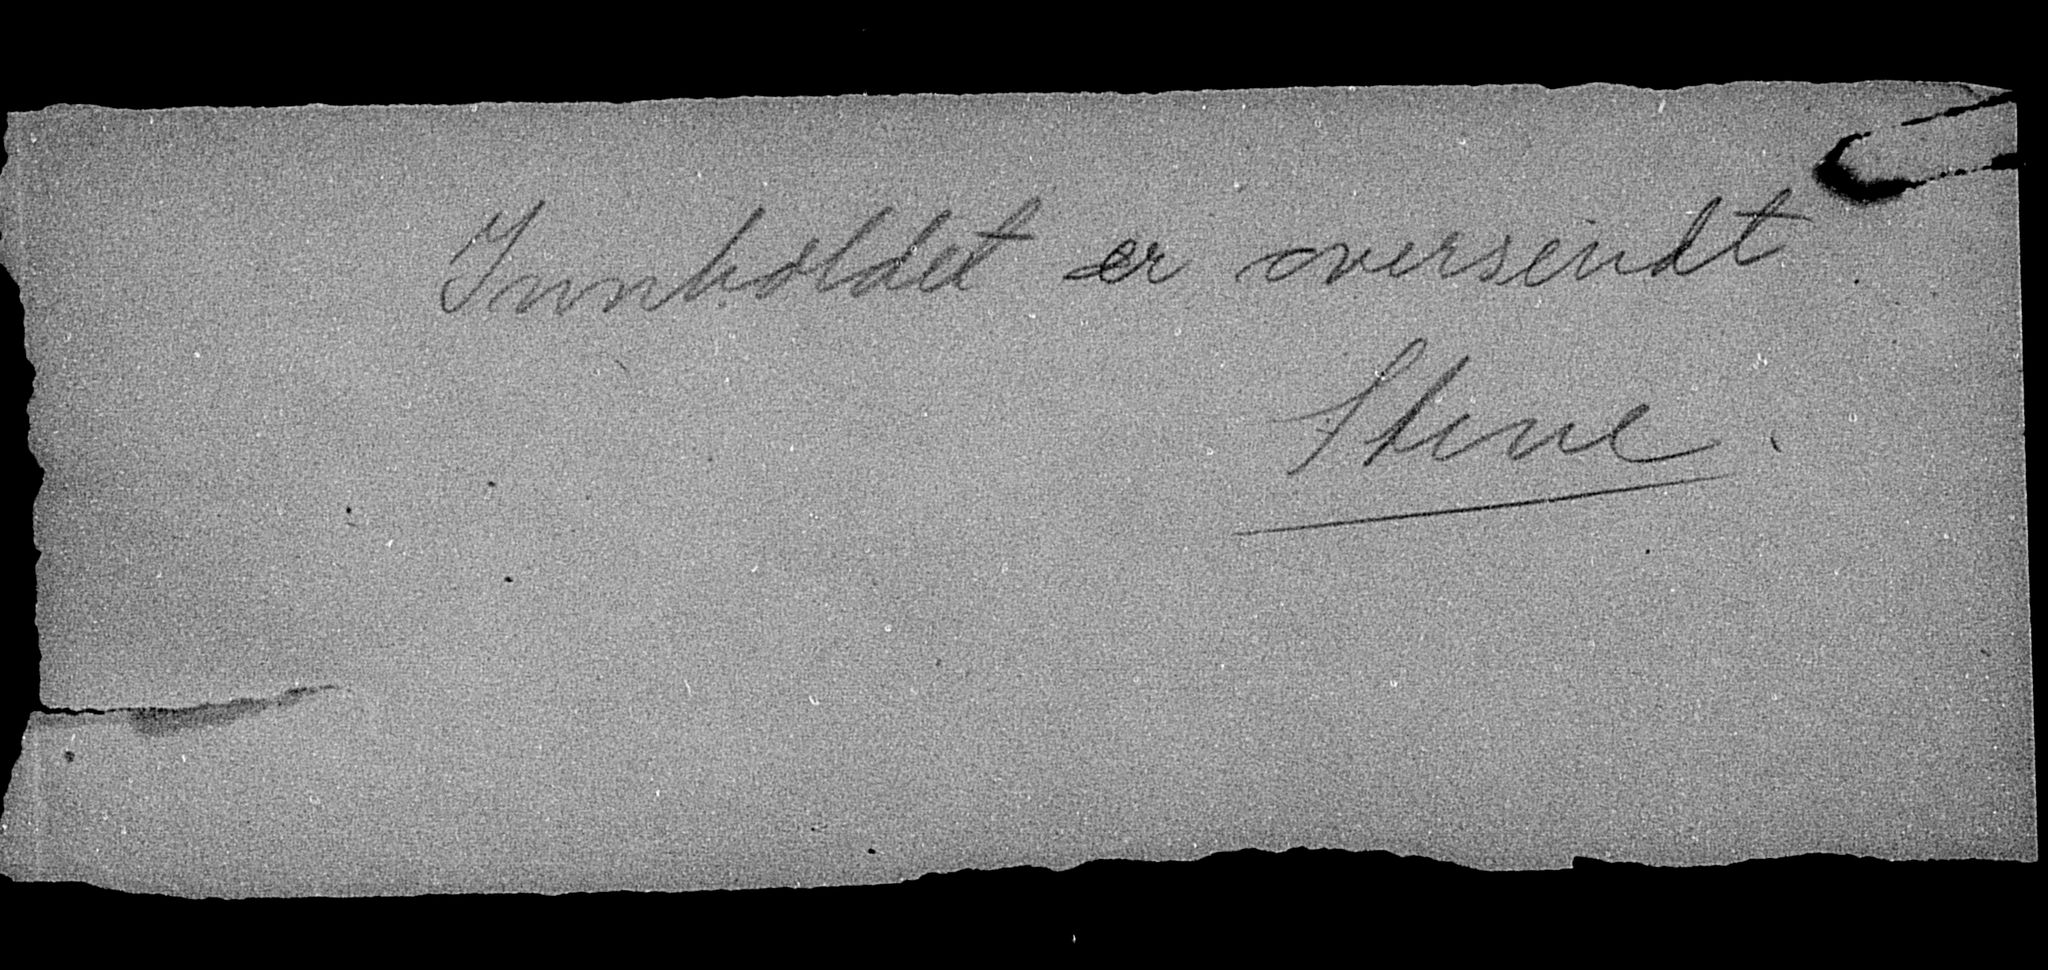 Innholdet er oversendt
Stene.